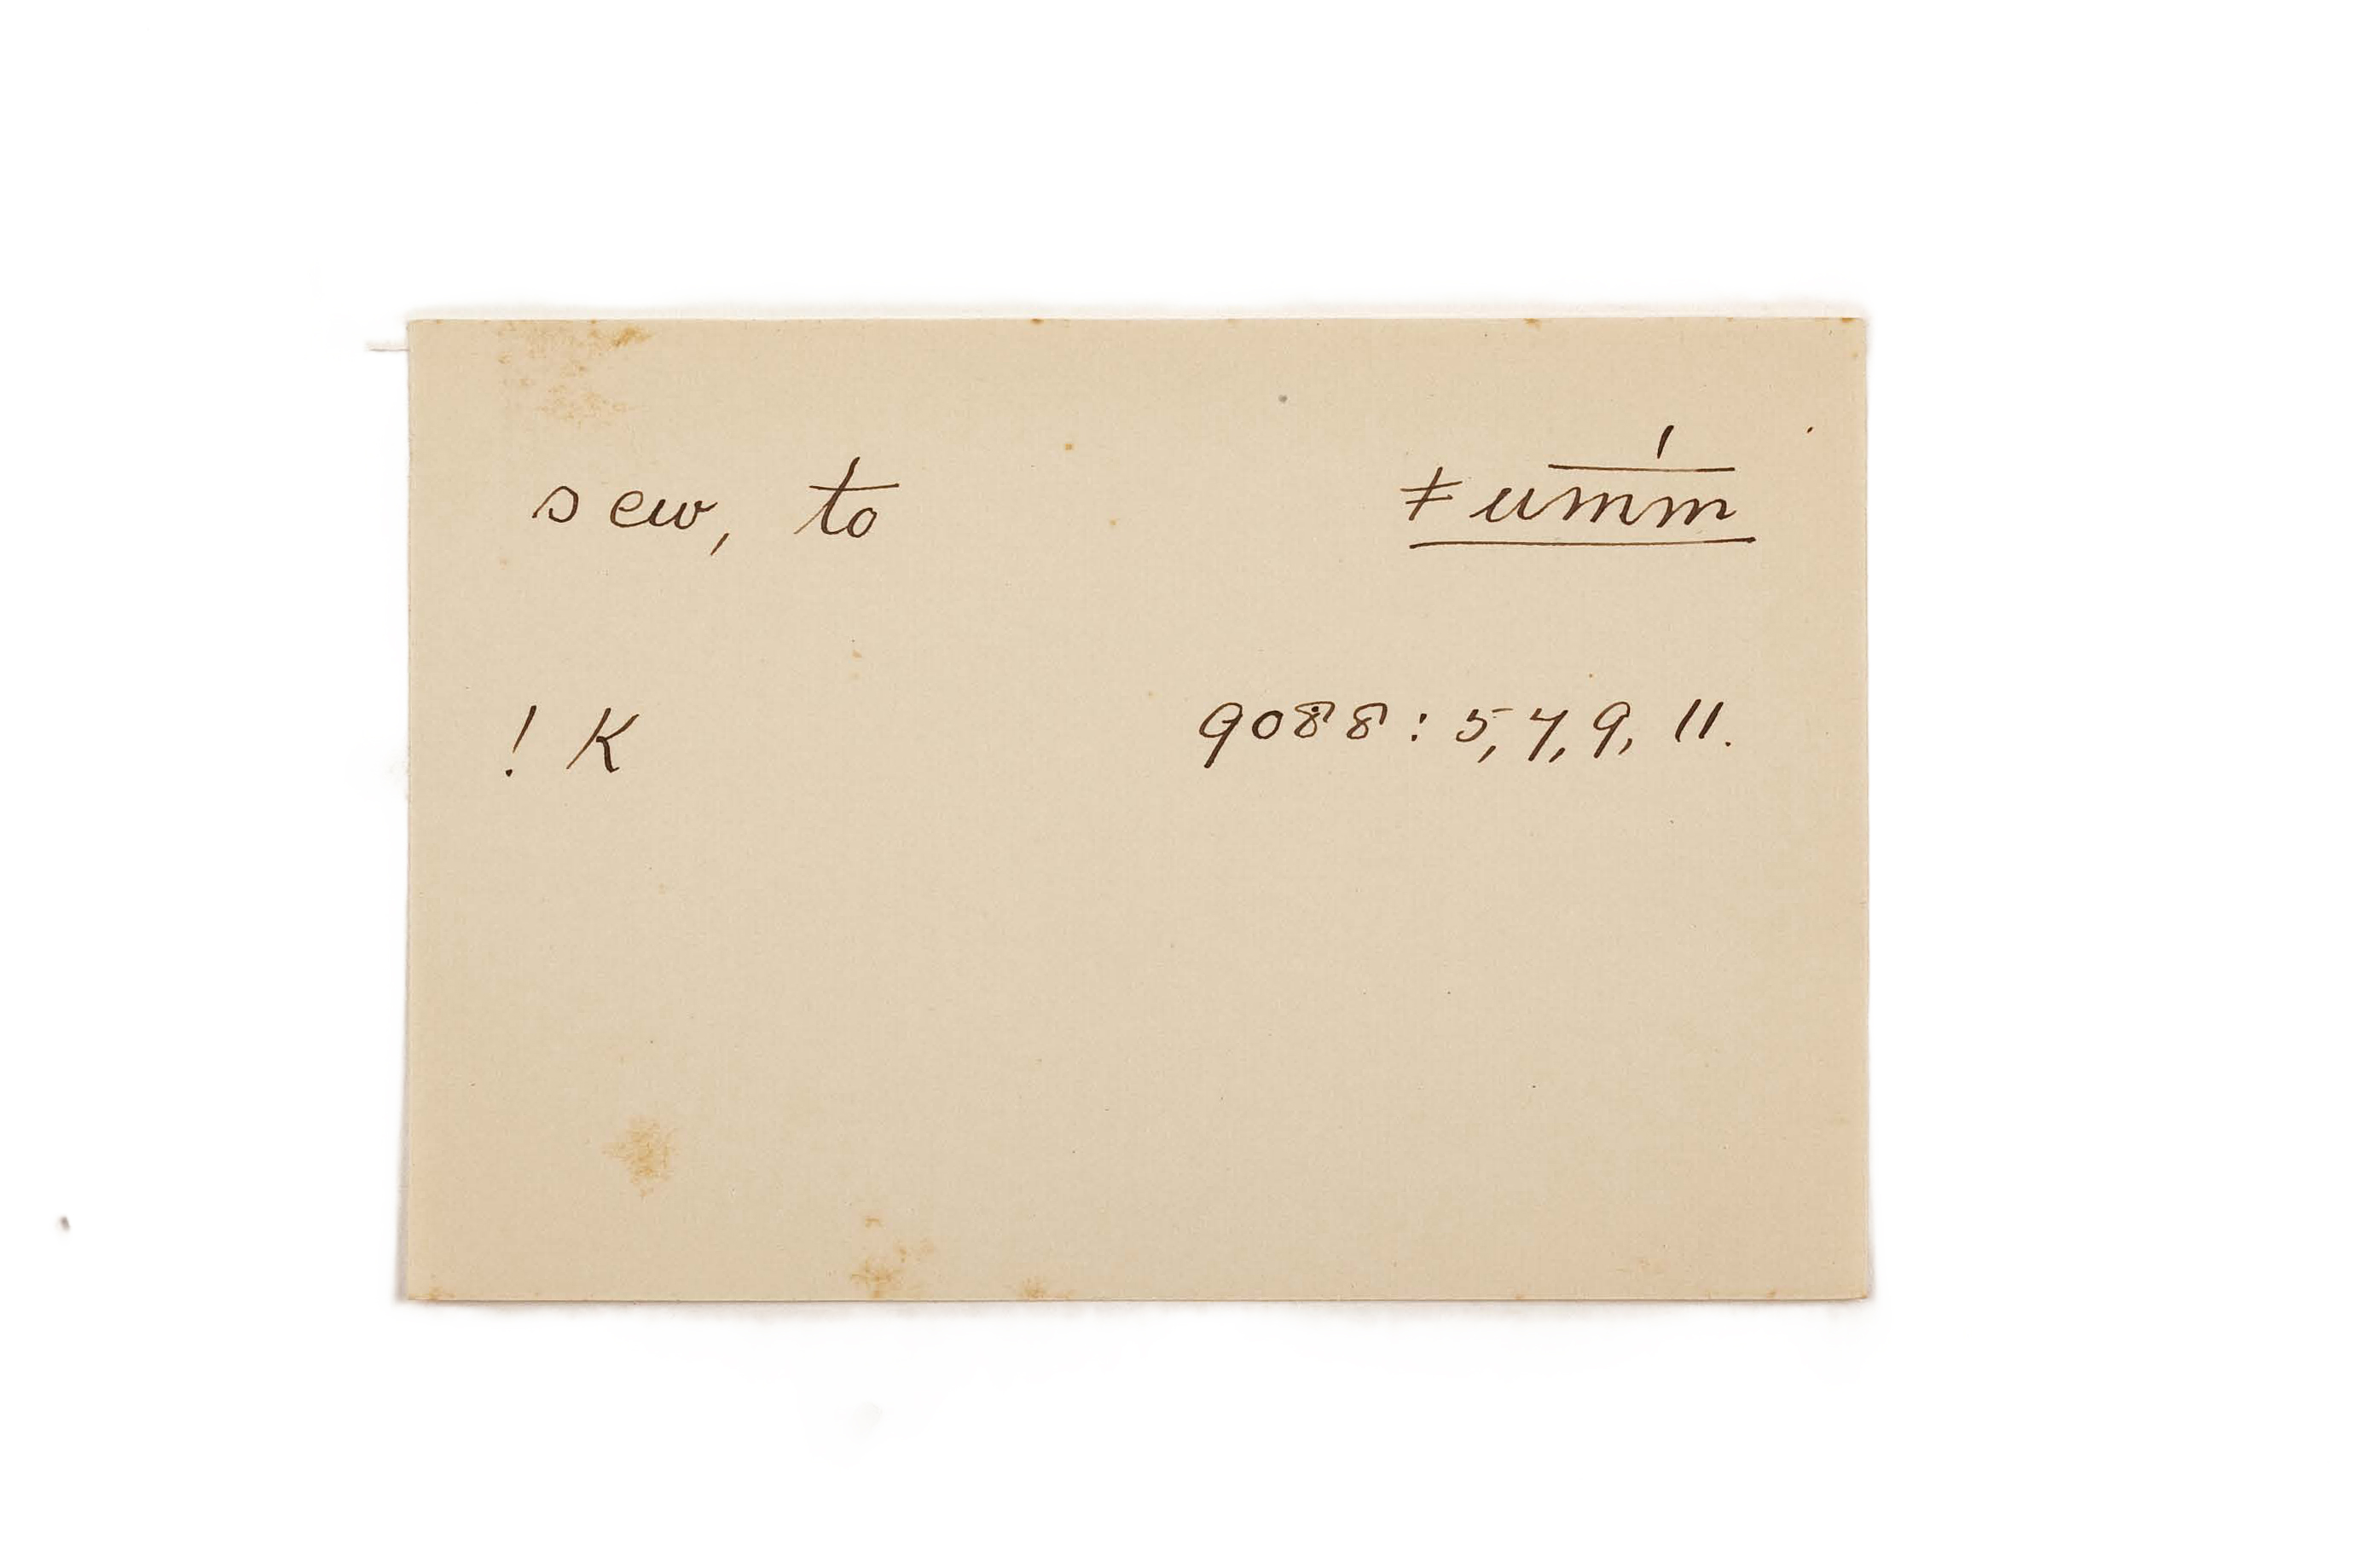 sew, to ǂum̄m̄́
! K 9088 : 5, 7, 9, 11.